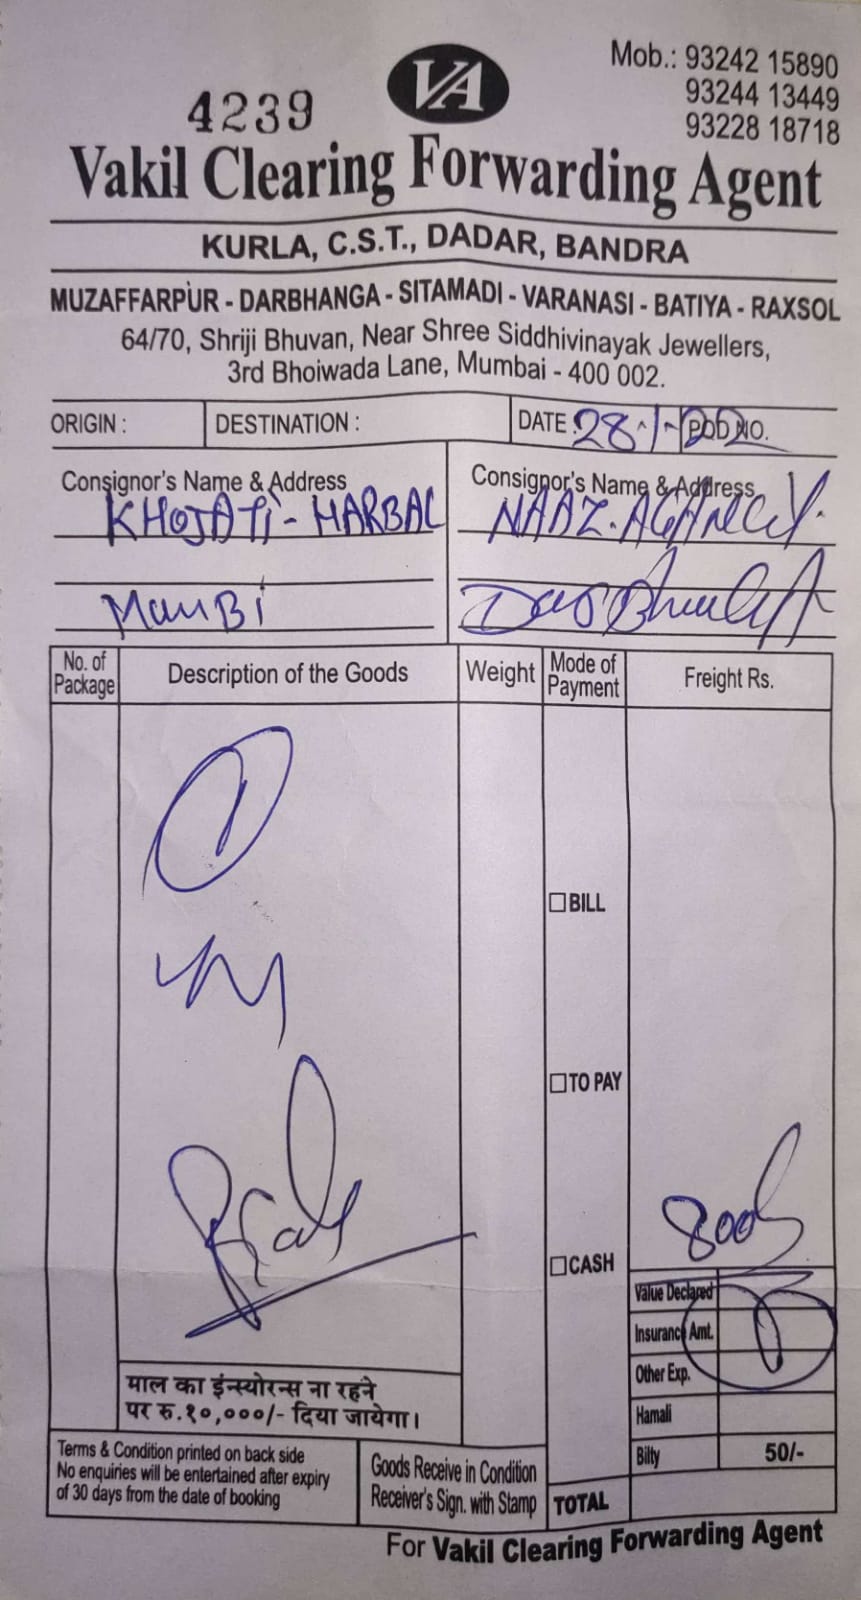 Mob.: 93242 15890
93244 13449
93228 18718
4239
VA
Vakil Clearing Forwarding Agent
KURLA, C.S.T., DADAR, BANDRA
MUZAFFARPUR - DARBHANGA - SITAMADI - VARANASI - BATIYA - RAXSOL
64/70, Shriji Bhuvan, Near Shree Siddhivinayak Jewellers,
3rd Bhoiwada Lane, Mumbai - 400 002.
ORIGIN : DESTINATION : DATE : 28-1- POD NO.
Consignor's Name & Address Consignor's Name & Address
KHOJATi - HARBAL NAAZ. AGANCY.
MumBi
No. of Package Description of the Goods Weight Mode of Payment Freight Rs.
1
BILL
TO PAY
800
CASH
Value Declared
Insurance Amt.
Other Exp.
Hamali
Bilty 50/-
TOTAL
माल का इंन्स्योरन्स ना रहने
पर रु.१०,०००/- दिया जायेगा।
Terms & Condition printed on back side
No enquiries will be entertained after expiry
of 30 days from the date of booking
Goods Receive in Condition
Receiver's Sign. with Stamp
For Vakil Clearing Forwarding Agent